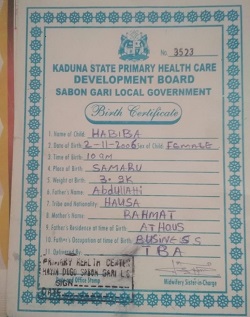 No. 3523
KADUNA STATE PRIMARY HEALTH CARE
DEVELOPMENT BOARD
SABON GARI LOCAL GOVERNMENT
Birth Certificate
1. Name of Child HABIBA
2. Date of Birth 2-11-2006 Sex of Child Female
3. Time of Birth 10am
4. Place of Birth SAMARU
5. Weight at Birth 3.9K
6. Father's Name Abdullahi
7. Tribe and Nationality HAUSA
8. Mother's Name RAHMAT
9. Father's Residence at time of Birth
10. Father's Occupation at time of Birth BUSINESS
11. Delivered By TBA
PRIMARY HEALTH CENTRE
SABON GARI
Official Office Stamp
Midwifery Sister-in-Charge